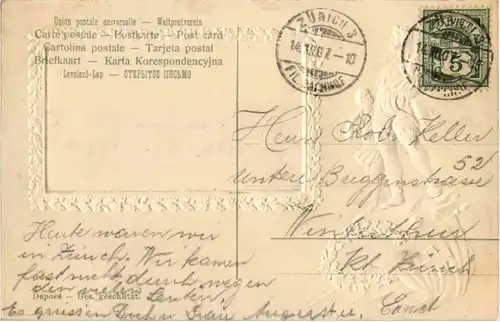 Union postale universelle — Weltpostverein
Carte postale — Postkarte — Post card
Cartolina postale — Tarjeta postal
Briefkaart — Karta Korespondencyjna
Levelező-Lap — ОТКРЫТОЕ ПИСЬМО
ZÜRICH 3
FIL. BAHNHOF
5
Herrn Rob. Keller
52
untere Briggerstrasse
Winterthur
Kt. Zürich
Heute waren wir
in Zürich. Wir kamen
fast nicht durch wegen
den vielen Leuten.
Deposé — Ges. geschützt.
Es grüssen Dich Frau Auguste u.
Ernst